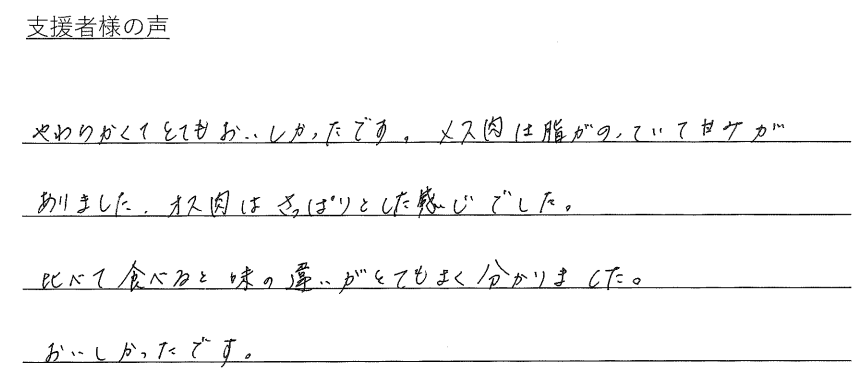 支援者様の声
やわらかくてとてもおいしかったです。メス肉は脂がのっていて甘みが
ありました。オス肉はさっぱりとした感じでした。
比べて食べると味の違いがとてもよく分かりました。
おいしかったです。